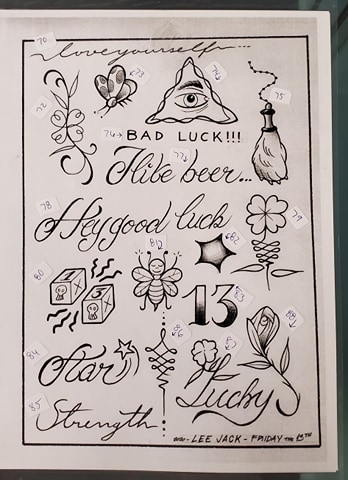 70
love yourself...
73
74
72
75
76→ BAD LUCK!!!
77
I like beer...
78
Hey good luck
79
81
82
80
3
13
83
88
86
87
84
Star
Lucky
85
Strength
2020 - LEE JACK - FRIDAY THE 13TH